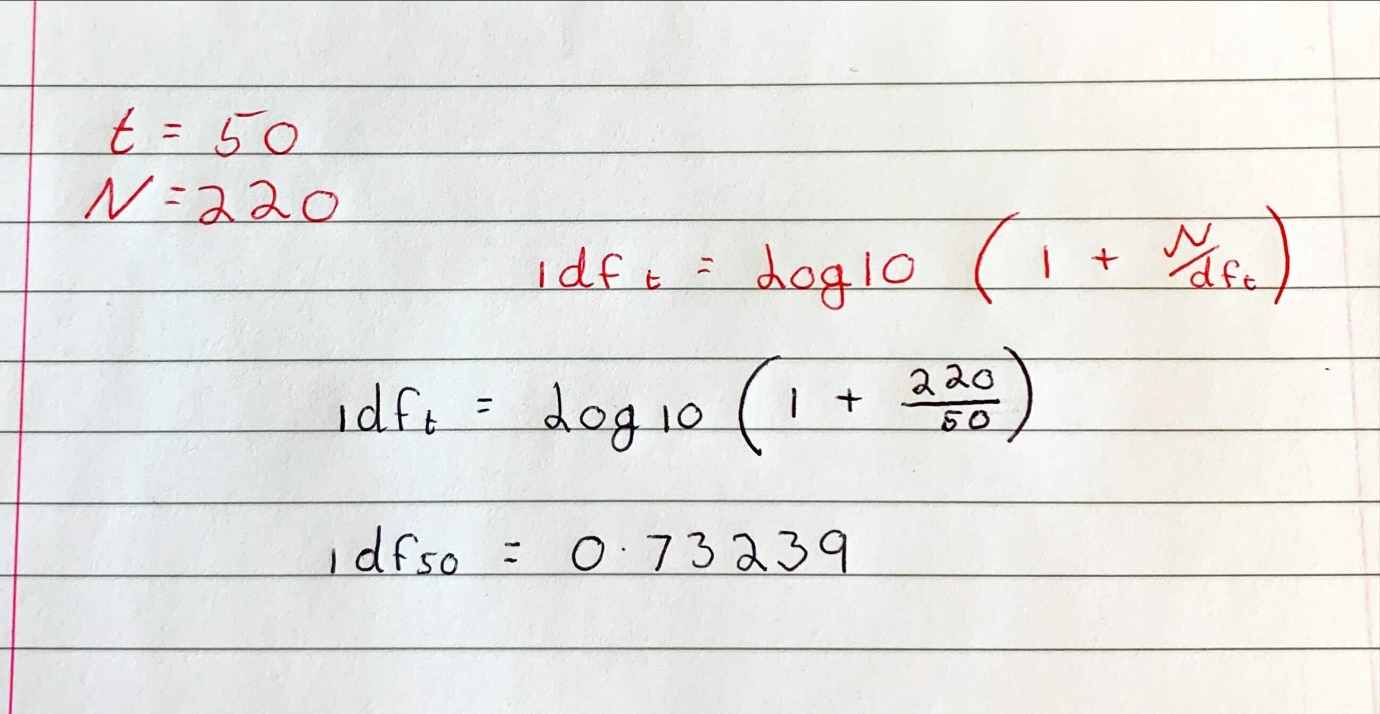 t = 50
N = 220
idf t = Log 10 ( 1 + N/dft )
idft = Log 10 ( 1 + 220/50 )
idf50 = 0.73239